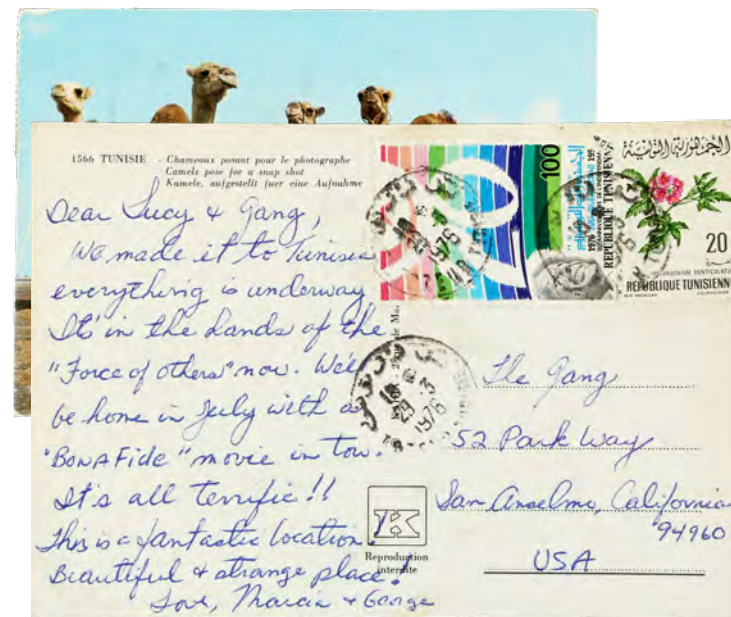 1566 TUNISIE - Chameaux posant pour le photographe
Camels pose for a snap shot
Kamele, aufgestellt fuer eine Aufnahme
Dear Lucy & Gang,
We made it to Tunisia
everything is underway
It's in the hands of the
"Force of others" now. We'll
be home in July with a
"BONAFide" movie in tow.
It's all terrific!!
This is a fantastic location!
Beautiful & strange place!
Love, Marcia & George
100
1976
REPUBLIQUE TUNISIENNE
الجمهورية التونسية
20
REPUBLIQUE TUNISIENNE
1976
29 -3
1976
The Gang
52 Park Way
San Anselmo, California
94960
USA
K
Reproduction
interdite